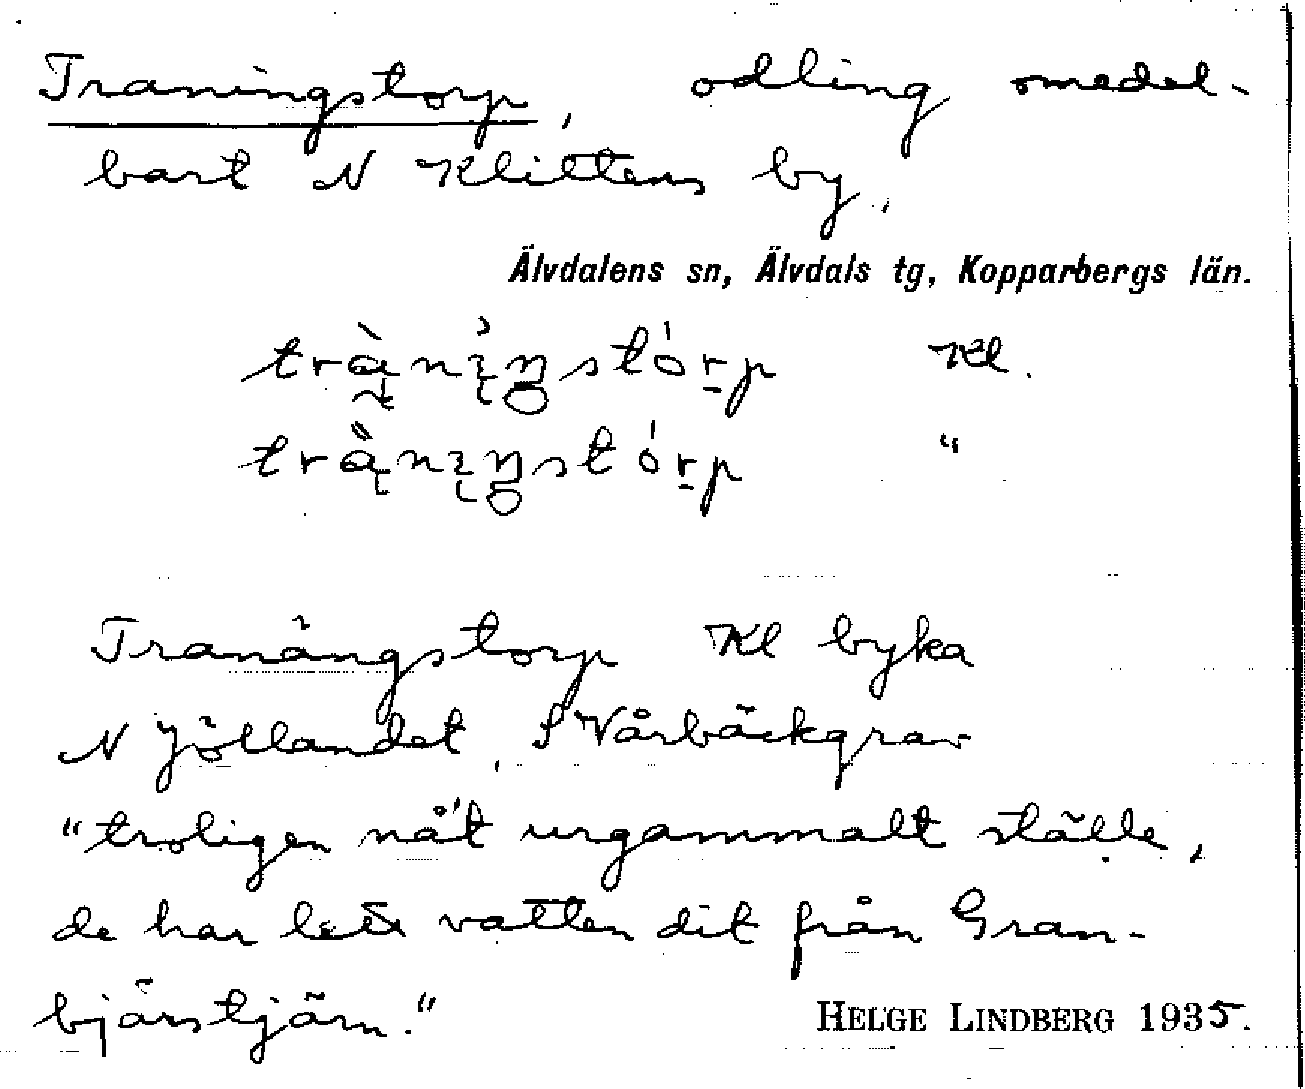 Traningstorp, odling omedel-
bart N Klittens by,
Älvdalens sn, Älvdals tg, Kopparbergs län.
Kl.
"
Tranängstorp Kl byka
N Jöllandet, S Vårbäckgrav
"troligen nå't urgammalt ställe,
de har lett vatten dit från Gran-
bjärstjärn."
HELGE LINDBERG 1935.